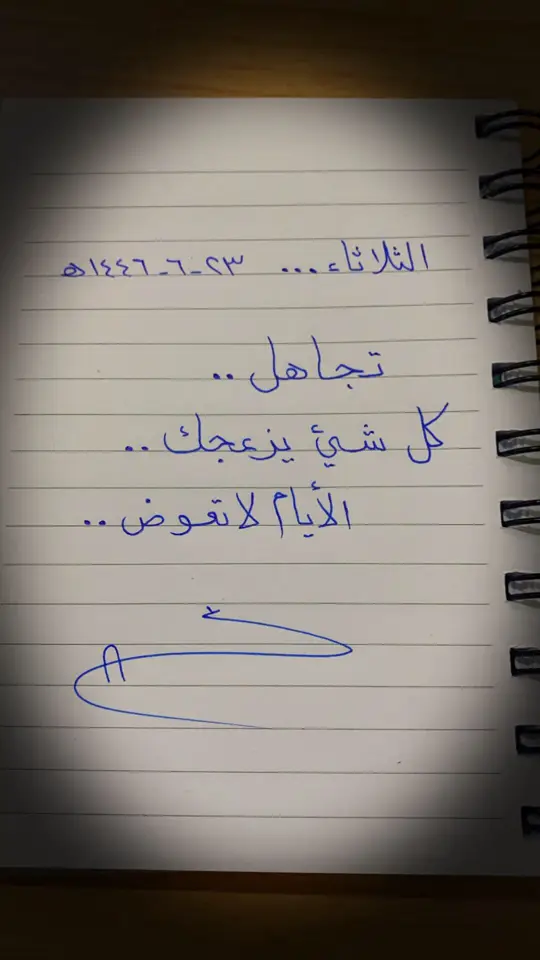 الثلاثاء... ٢٣-٦-١٤٤٦ه
تجاهل ..
كل شيئ يزعجك ..
الأيام لاتعوض ..